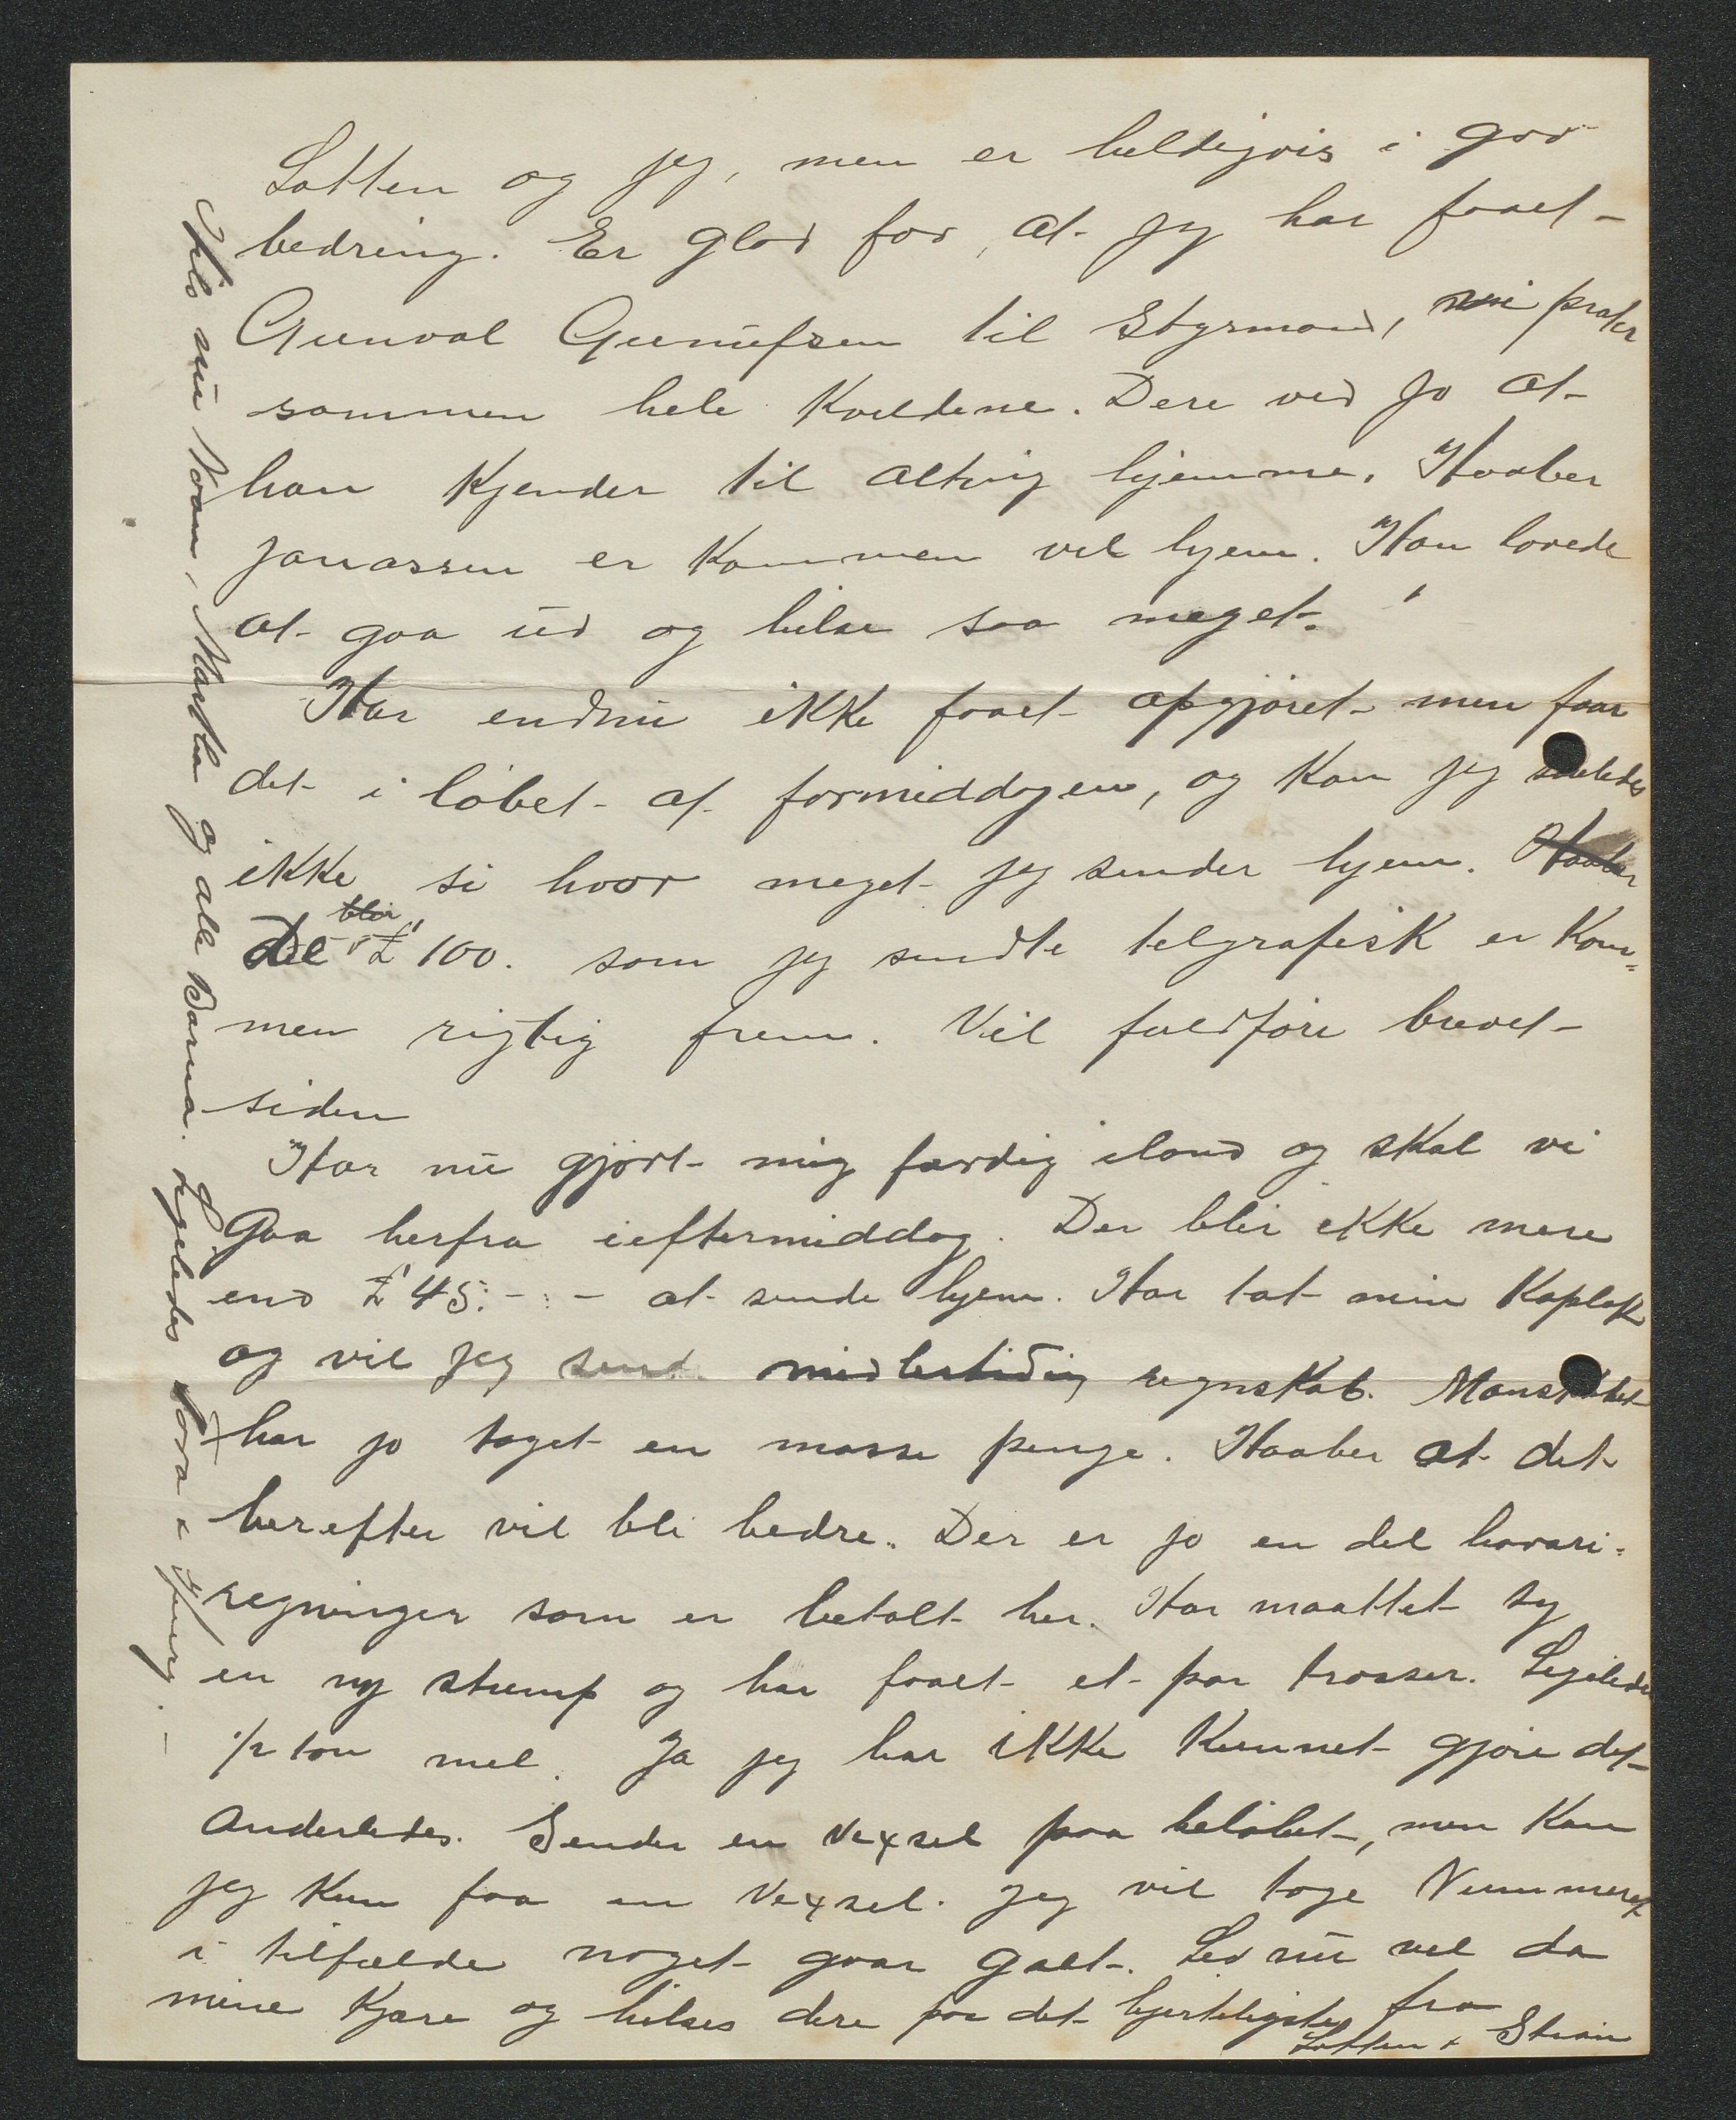 Lotten og jeg, men er heldigvis i god
bedring. Er glad for, at jeg har faaet
Gunval Gunufsen til Styrmand, vi prater
sammen hele Kveldene. Dere ved jo at
han Kjender til alting hjemme. Haaber
Jonassen er Kommen vel hjem. Han lovede
at gaa ud og hilse saa meget.
Har endnu ikke faaet opgjøret men faar
det i løbet af formiddagen, og Kan jeg saaledes
ikke si hvor meget jeg sender hjem. Haaber
De £ 100. som jeg sendte telgrafisk er Kom=
men rigtig frem. Vil fuldføre brevet
siden
Har nu gjort mig færdig iland og skal vi
gaa herfra ieftermiddag. Der blir ikke mere
end £ 45:-:- at sende hjem. Har tat min Kaplak
og vil jeg send midlertidig regnskab. Manskabet
har jo taget en masse penge. Haaber at det
herefter vil bli bedre. Der er jo en del havari=
regninger som er betalt her. Har maattet sy
en ny stump og har faaet et par trosser. Ligeledes
1/2 ton mel. Ja jeg har ikke Kunnet gjøre det
anderledes. Sender en Vexsel paa beløbet, men Kan
jeg Kun faa en Vexsel. Jeg vil tage Nummeret
i tilfælde noget gaar galt. Lev nu vel da
mine Kjære og hilses dere paa det hjerteligste fra
Lotten & Stian
Hils nu Mam, Martha og alle Barna. Ligeledes Thora &